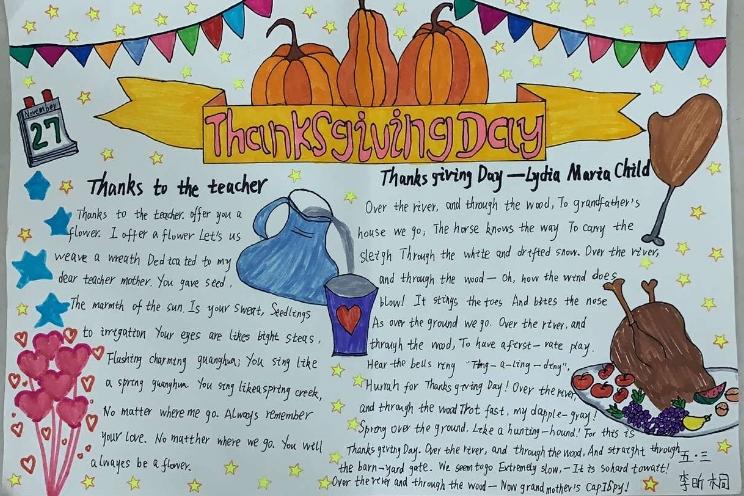 November
27
Thanksgiving Day
Thanks to the teacher
Thanks to the teacher. offer you a
flower. I offer a flower Let's us
weave a wreath Dedicated to my
dear teacher mother. You gave seed.
The marmth of the sun. Is your sweat, Seedlings
to irrigation Your eyes are likes bight steas,
Flashing charming guanghua; You sing like
a spring guanghua. You sing likeaspring creek,
No matter where me go. Always remember
your love. No matther where we go. You will
always be a flover.
Thanks giving Day —Lydia Maria Child
Over the river, and through the wood, To grandfather's
house we go; The horse knows the way To carry the
sleigh Through the white and drifted snow. Over the river,
and through the wood— Oh, how the wind does
blow! It stings the toes And bites the nose
As over the ground we go. Over the river, and
through the wood, To have a first- rate play.
Hear the bells ring "Ting-a-ling-ding",
Hurrah for Thanksgiving Day! Over the river,
and through the wood Trot fast, my dapple-gray!
Spring over the ground, Like a hunting-hound! For this is
Thanks giving Day. Over the river, and through the wood, And straight through
the barn-yard gate. We seem to go Extremely slow,- It is so hard to wait!
Over the river and through the wood— Now grandmother's cap I spy!
五·三
李昕桐